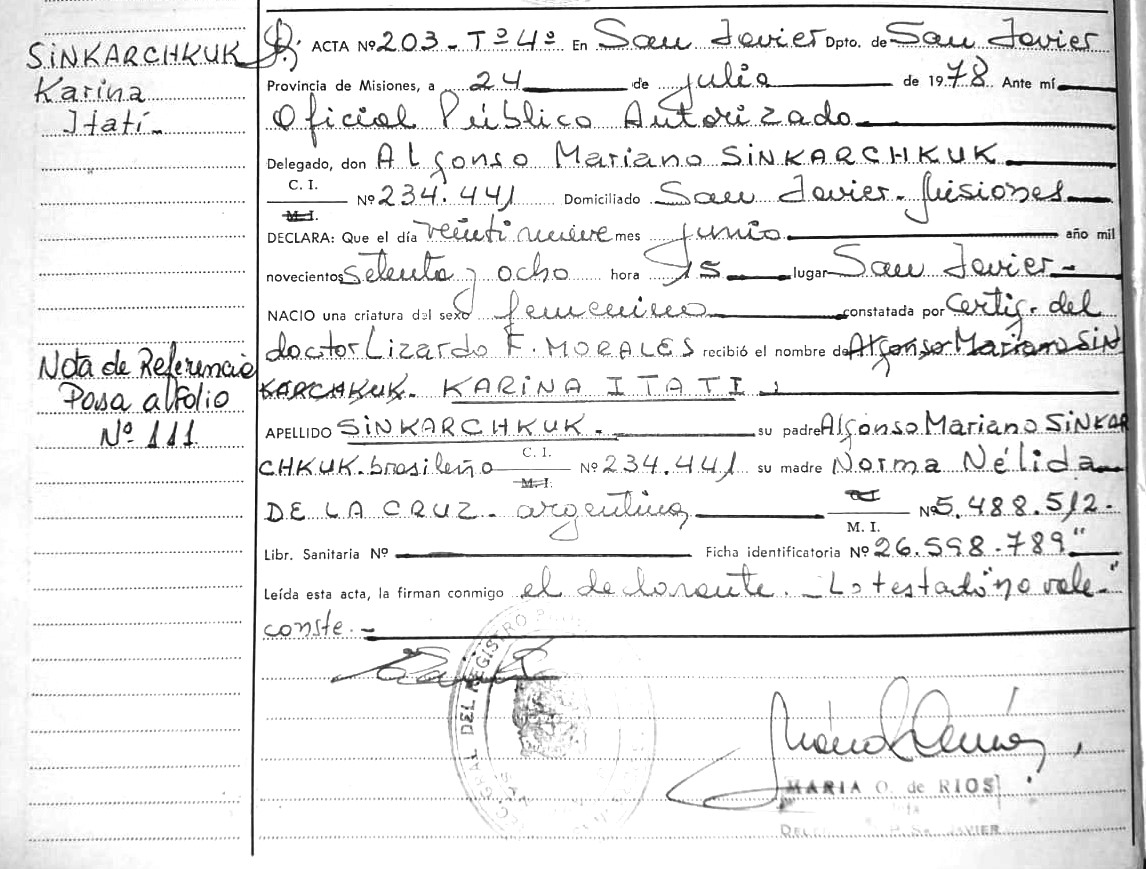 SINKARCHKUK
Karina
Itatí.-
Nota de Referencia
Pasa al Folio
Nº 111
ACTA Nº 203 - Tº 4º En San Javier Dpto. de San Javier
Provincia de Misiones, a 24 de julio de 1978 Ante mí
Oficial Público Autorizado
Delegado, don Alfonso Mariano SINKARCHKUK
C. I.
M. I. Nº 234.441 Domiciliado San Javier - Misiones
DECLARA: Que el día veintinueve mes junio año mil
novecientos setenta y ocho hora 15 lugar San Javier -
NACIO una criatura del sexo femenino constatada por Certif. del
doctor Lizardo F. MORALES recibió el nombre de Alfonso Mariano SIN
KARCHKUK. KARINA ITATI
APELLIDO SINKARCHKUK. su padre Alfonso Mariano SINKAR
CHKUK. brasileño C. I. M. I. Nº 234.441 su madre Norma Nélida
DE LA CRUZ - argentina M. I. Nº 5.488.512.-
Libr. Sanitaria Nº Ficha identificatoria Nº 26.598.789"
Leída esta acta, la firman conmigo el declarante. - Lo testado "no vale"
conste.-
DEL REGISTRO
MARIA O. de RIOS
JAVIER